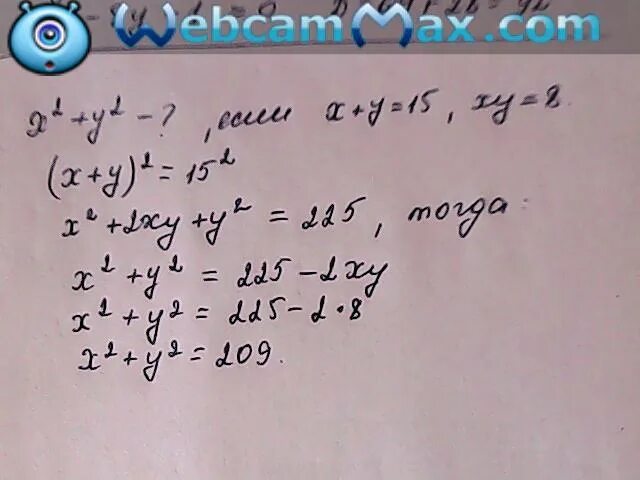 WebcamMax.com
x² + y² - ? , если x + y = 15, xy = 8.
(x + y)² = 15²
x² + 2xy + y² = 225, тогда:
x² + y² = 225 - 2xy
x² + y² = 225 - 2 • 8
x² + y² = 209.